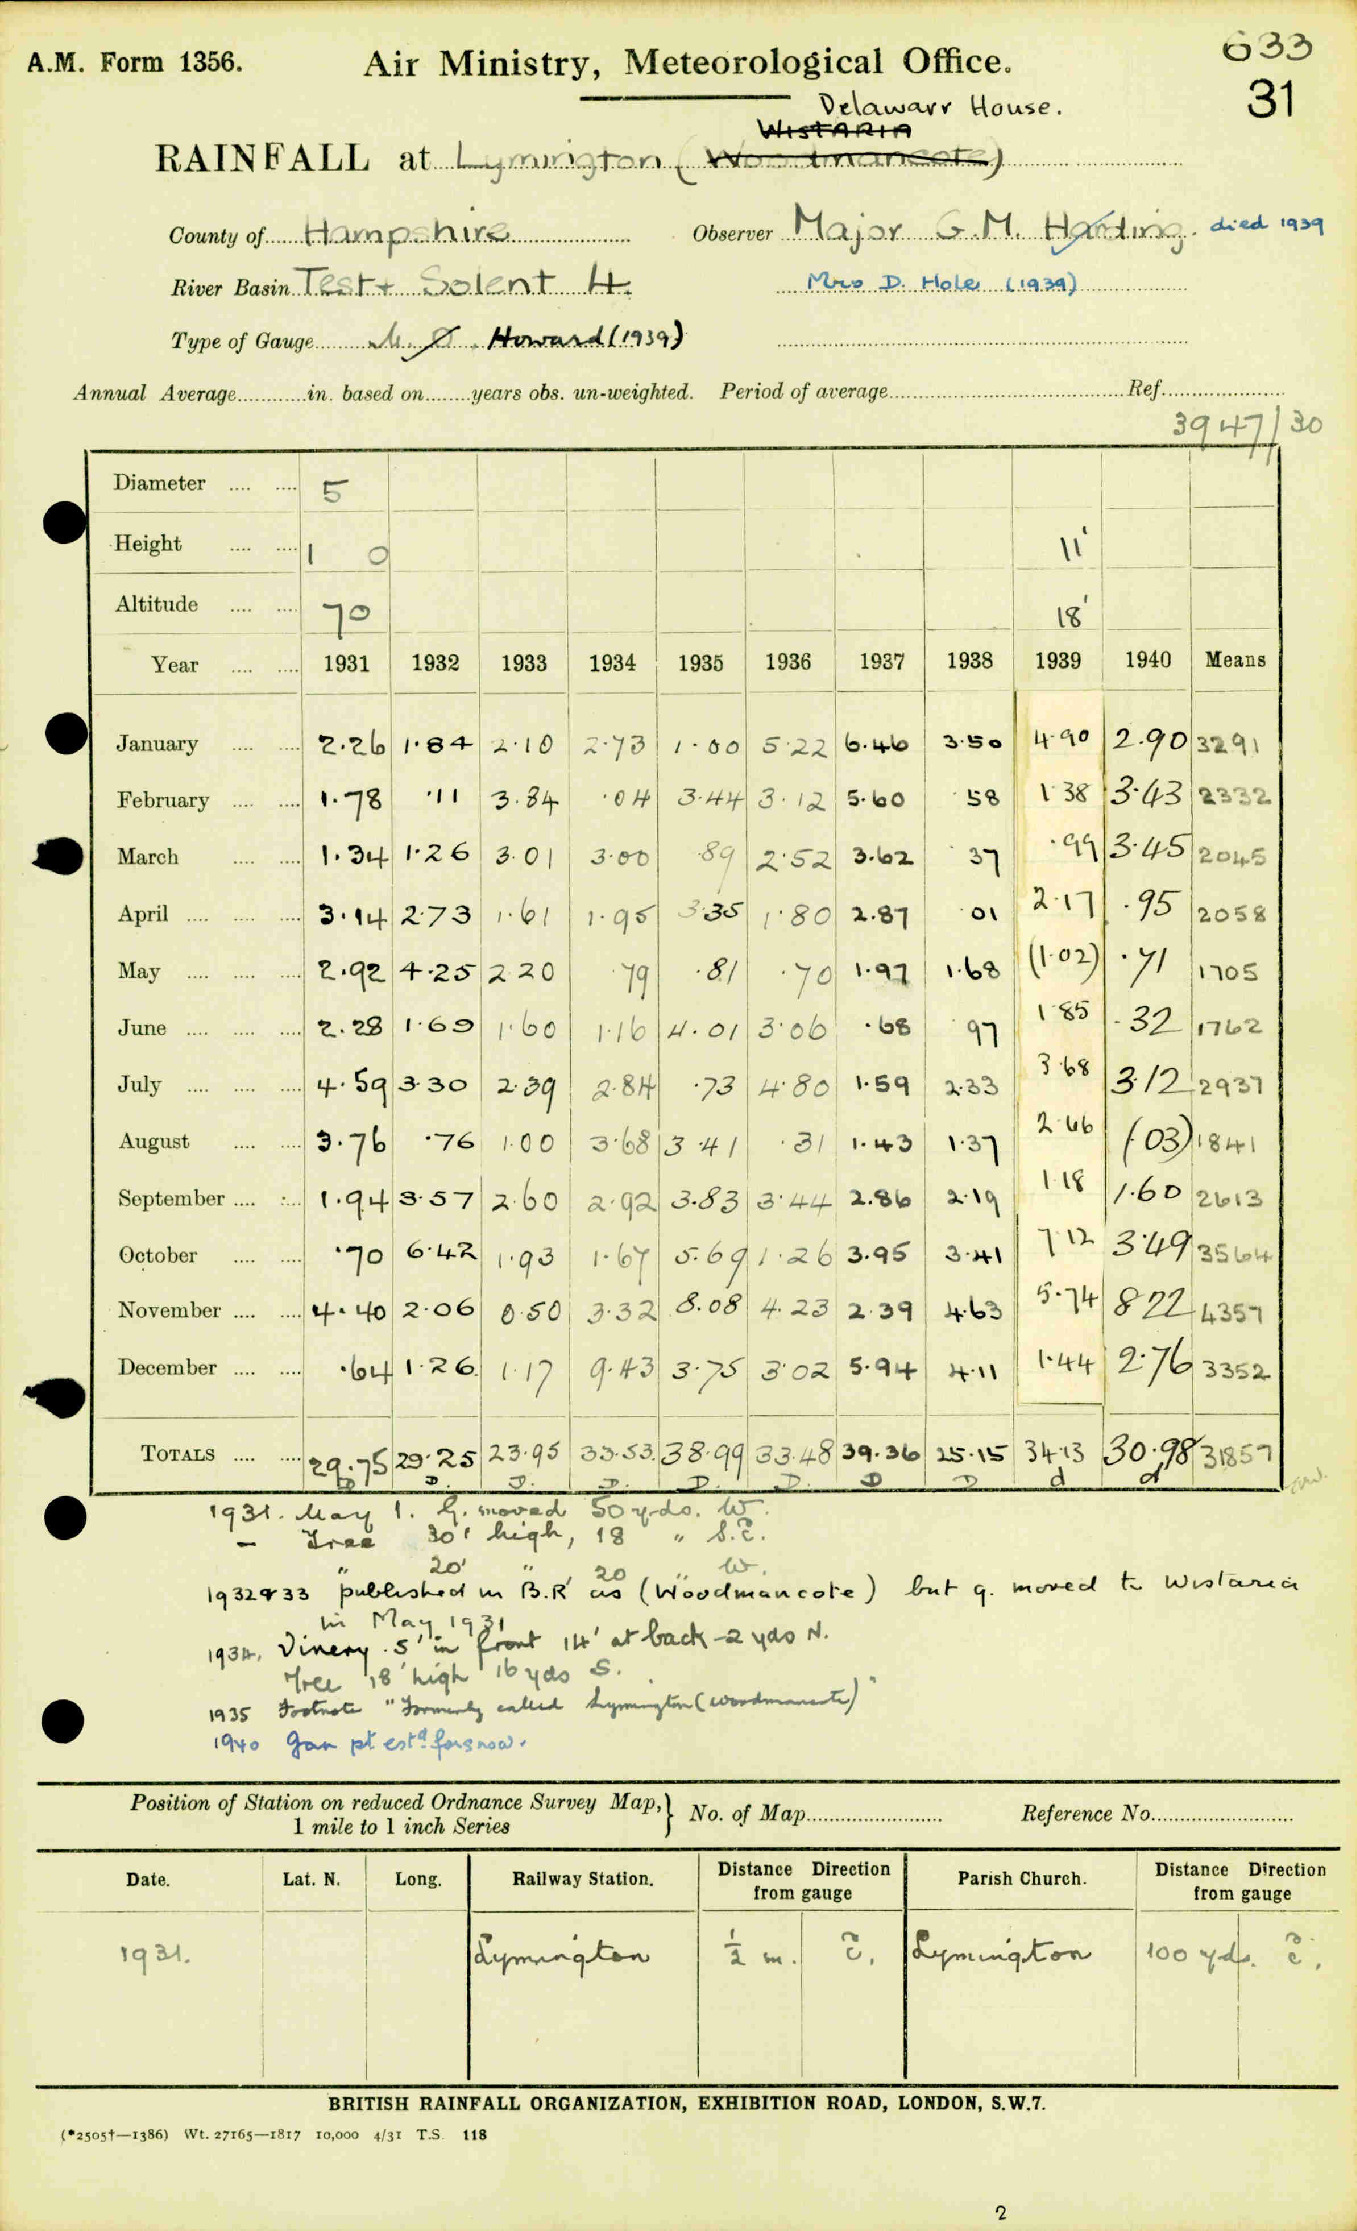 A.M. Form 1356.
Air Ministry, Meteorological Office.
633
31
Delawarr House.
WISTARIA
RAINFALL at Lymington (Woodmancote)
County of Hampshire Observer Major G.M. Harding. died 1939
River Basin Test + Solent 4. Mrs D. Hole (1939)
Type of Gauge M.O. Howard (1939)
Annual Average in. based on years obs. un-weighted. Period of average Ref.
3947/30
Diameter 5
Height 1 0 11'
Altitude 70 18'
Year 1931 1932 1933 1934 1935 1936 1937 1938 1939 1940 Means
January 2.26 1.84 2.10 2.73 1.00 5.22 6.46 3.50 4.90 2.90 3291
February 1.78 .11 3.84 .04 3.44 3.12 5.60 58 1.38 3.43 2332
March 1.34 1.26 3.01 3.00 .89 2.52 3.62 37 .99 3.45 2045
April 3.14 2.73 1.61 1.95 3.35 1.80 2.87 01 2.17 .95 2058
May 2.92 4.25 2.20 .79 .81 .70 1.97 1.68 (1.02) .71 1705
June 2.28 1.69 1.60 1.16 4.01 3.06 .68 97 1.85 .32 1762
July 4.59 3.30 2.39 2.84 .73 4.80 1.59 2.33 3.68 3.12 2937
August 3.76 .76 1.00 3.68 3.41 .31 1.43 1.37 2.66 (.03) 1841
September 1.94 3.57 2.60 2.92 3.83 3.44 2.86 2.19 1.18 1.60 2613
October .70 6.42 1.93 1.67 5.69 1.26 3.95 3.41 7.12 3.49 3564
November 4.40 2.06 0.50 3.32 8.08 4.23 2.39 4.63 5.74 8.22 4357
December .64 1.26 1.17 9.43 3.75 3.02 5.94 4.11 1.44 2.76 3352
TOTALS 29.75 29.25 23.95 33.53 38.99 33.48 39.36 25.15 34.13 30.98 31857
D D. D. D. D. D. D D d d
1931. May 1. G. moved 50 yds. W.
– Tree 30' high, 18 " S.E.
" 20' " 20 " W.
1932 & 33 published in B.R. as (Woodmancote) but g. moved to Wistaria
in May 1931
1934. Vinery 5' in front 14' at back 2 yds N.
Tree 18' high 16 yds S.
1935 Footnote "Formerly called Lymington (Woodmancote)"
1940 Jan pt estd for snow.
Position of Station on reduced Ordnance Survey Map, } No. of Map Reference No.
1 mile to 1 inch Series
Date. Lat. N. Long. Railway Station. Distance Direction from gauge Parish Church. Distance Direction from gauge
1931. Lymington ½ m. E. Lymington 100 yds. E.
BRITISH RAINFALL ORGANIZATION, EXHIBITION ROAD, LONDON, S.W.7.
(*2505†—1386) Wt. 27165—1817 10,000 4/31 T.S. 118
2